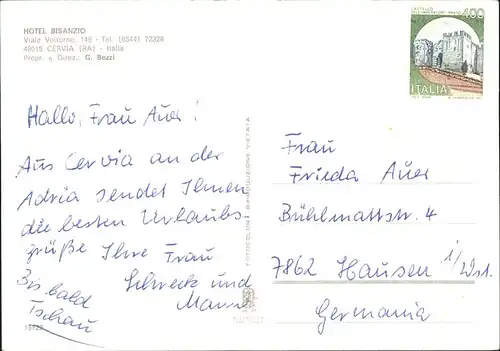 HOTEL BISANZIO
Viale Volturno, 149 - Tel. (0544) 72328
48015 CERVIA (RA) - Italia
Propr. e Direz.: G. Bezzi
Hallo, Frau Auer!
Aus Cervia an der
Adria sendet Ihnen
die besten Urlaubs-
grüße Ihre Frau
Schreck und
Mann
Bis bald
Tschau
15722
FOTOCOLOR - RIPRODUZIONE VIETATA
400
ITALIA
Frau
Frieda Auer
Bühlmattstr. 4
7862 Hausen i/Wst.
Germania